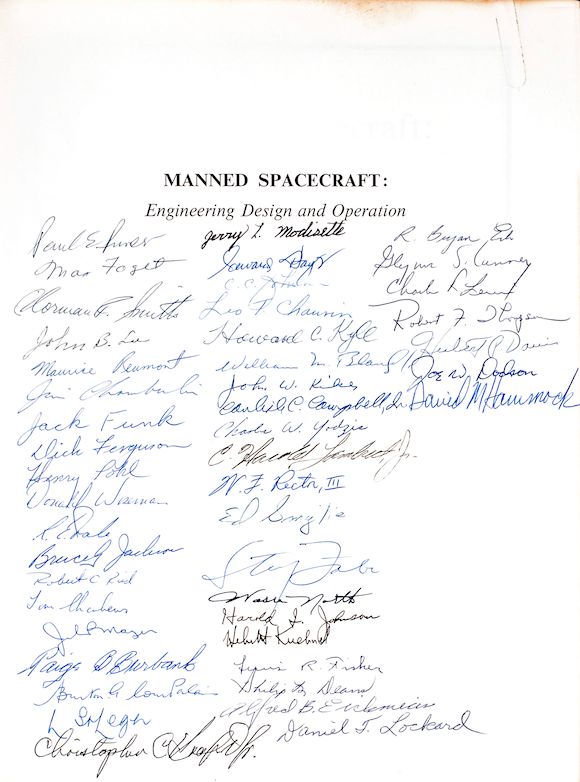 MANNED SPACECRAFT:
Engineering Design and Operation
Paul E. Purser
Max Faget
Norman F. Smith
John B. Lee
Maurice
Jim Chamberlin
Jack Funk
Dick Ferguson
Henry Pohl
Donald
Bruce G Jackson
Robert C Ried
J.P. Mayer
Paige B Burbank
Burton G
L St Leger
Christopher C Kraft Jr.
Jerry L. Modisette
C. C. Johnson
Leo T Chauvin
Howard C. Kyle
William M. Bland
John W. Kiker
Carlisle C. Campbell, Jr.
Charles W.
C Harold Lambert, Jr.
W. F. Rector, III
Ed
Warren North
Harold I. Johnson
Helmut Kuehnel
Lewis R. Fisher
Philip M Deans
Alfred B. Eickmeier
Daniel T. Lockard
R. Bryan Erb
Glynn S. Lunney
Robert F. Thompson
Joe W. Dodson
David M Hammock